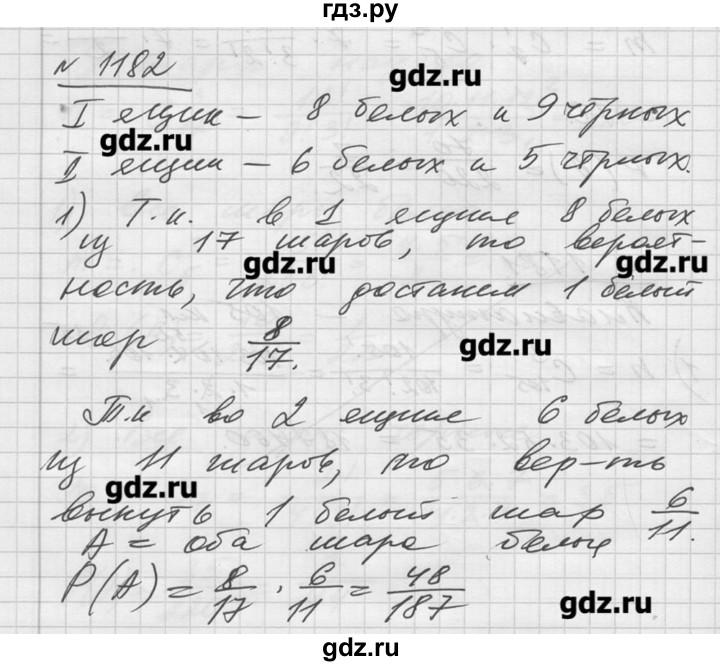 гдз.ру
№ 1182
gdz.ru
I ящик – 8 белых и 9 чёрных
gdz.ru
II ящик – 6 белых и 5 чёрных.
1) Т.к. в 1 ящике 8 белых
из 17 шаров, то вероят-
gdz.ru gdz.ru
ность, что достанем 1 белый
шар 8/17.
gdz.ru
Т.к во 2 ящике 6 белых
из 11 шаров, то вер-ть
gdz.ru
вынуть 1 белый шар 6/11.
A = оба шара белые
P(A) = 8/17 · 6/11 = 48/187
gdz.ru
gdz.ru